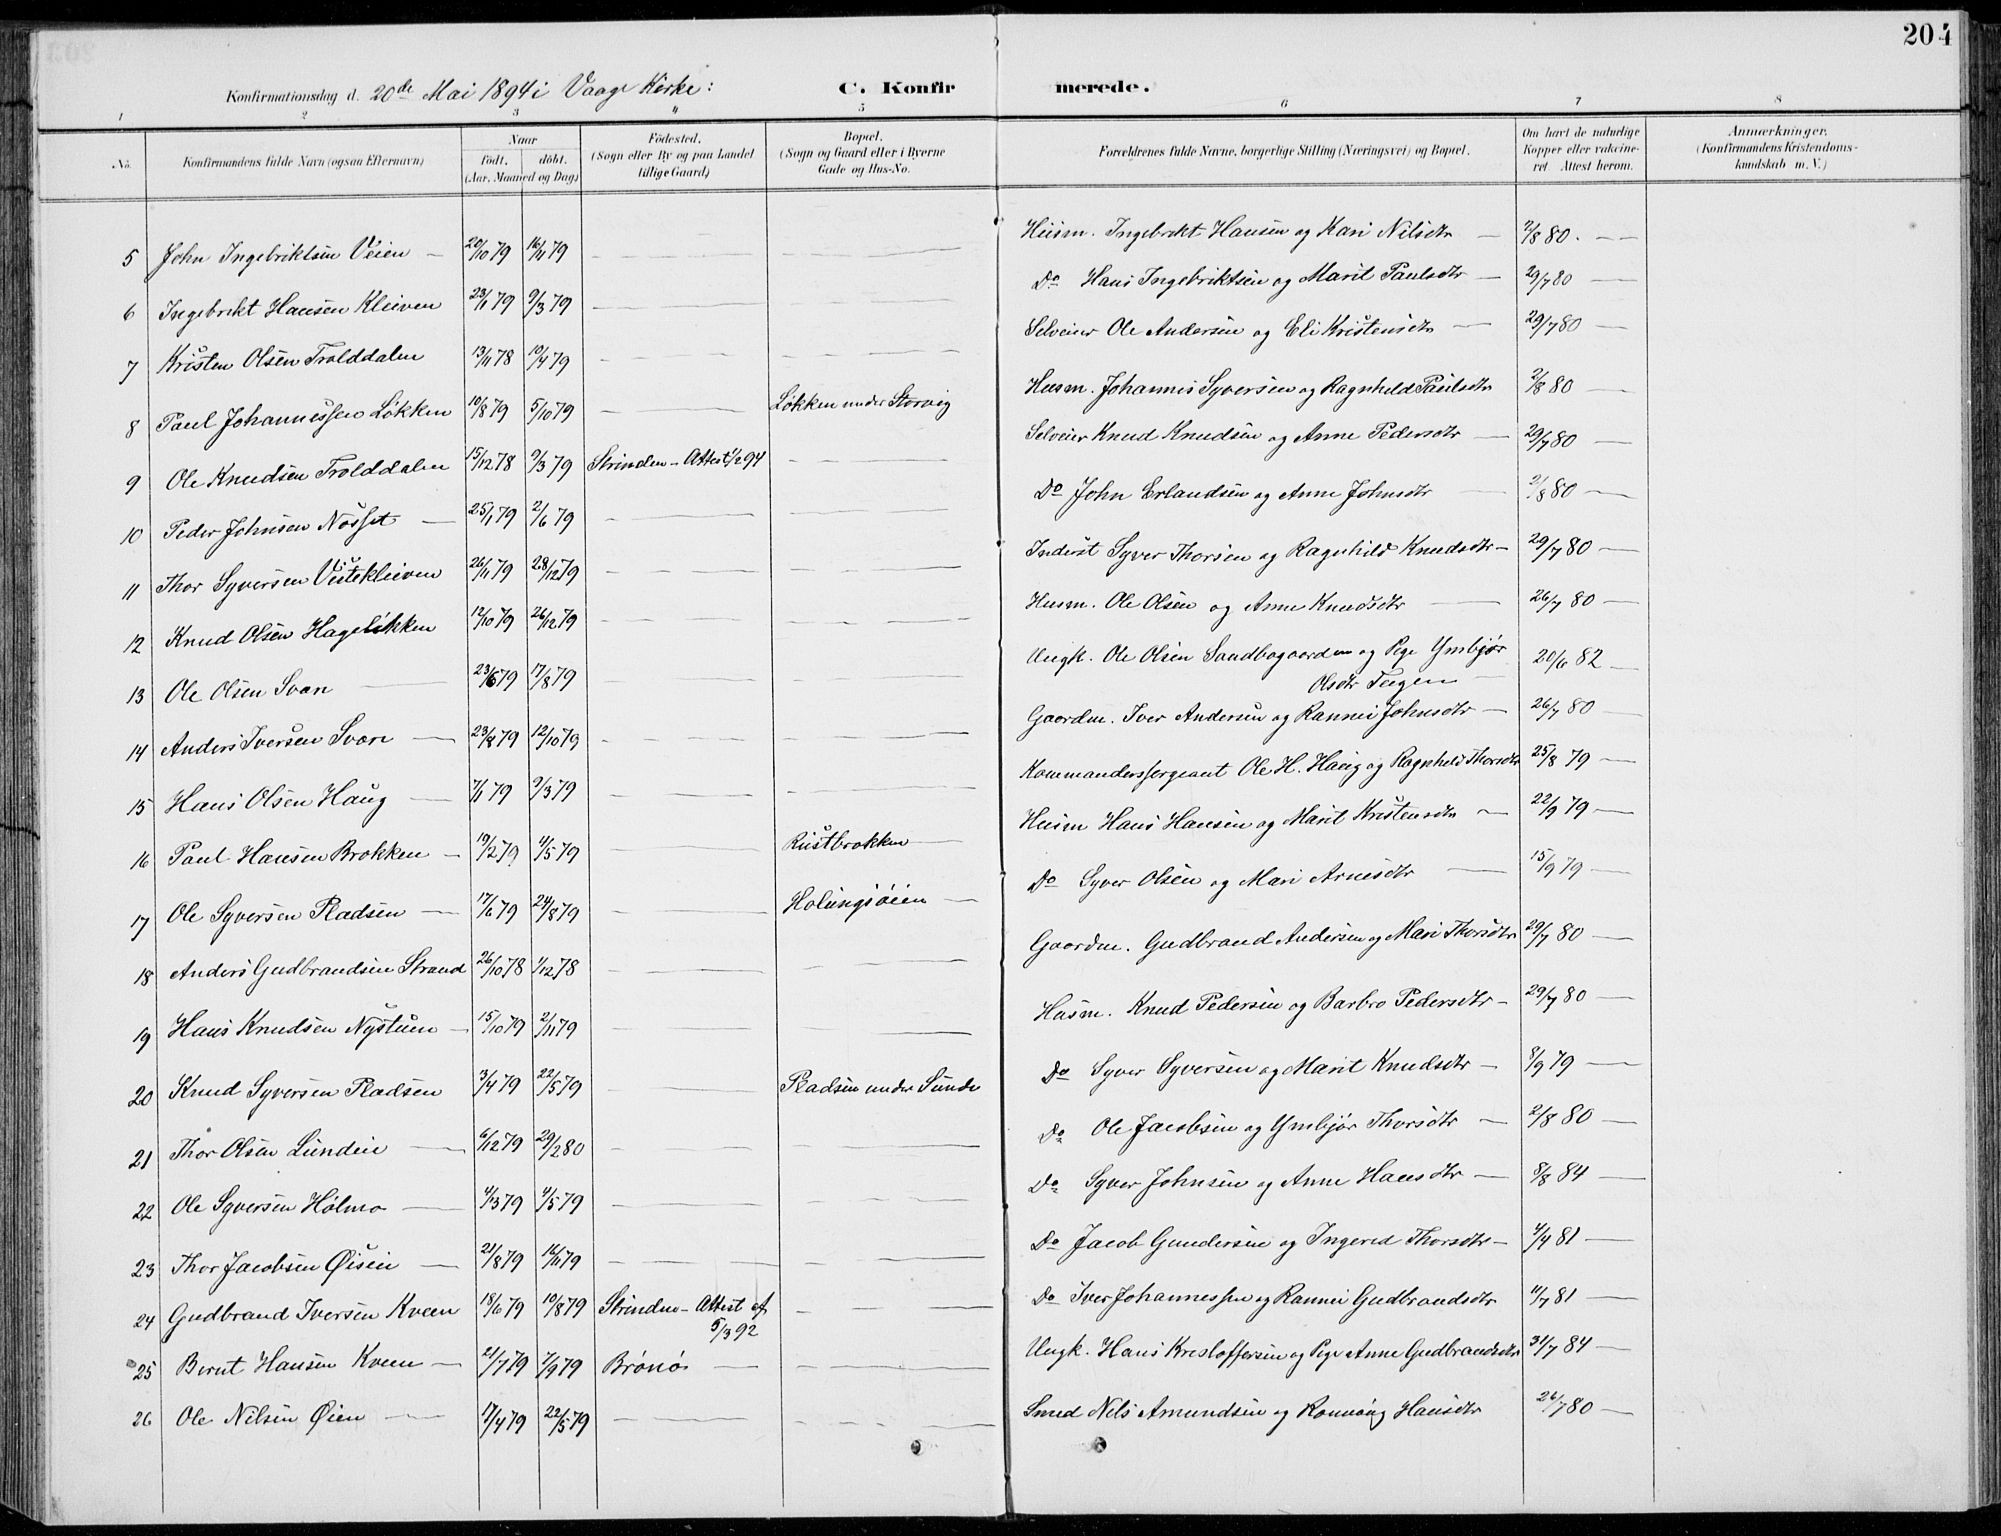 204
Konfirmationsdag d. 20de Mai 1894 i Vaage Kirke: C. Konfirmerede.
1 2 3 4 5 6 7 8
No. Konfirmandens fulde Navn (ogsaa Efternavn) Naar født. døbt. (Aar, Maaned og Dag) Fødested. (Sogn eller By og paa Landet tillige Gaard) Bopæl. (Sogn og Gaard eller i Byerne Gade og Hus-No. Forældrenes fulde Navne, borgerlige Stilling (Næringsvei) og Bopæl. Om havt de naturlige Kopper eller vakcineret. Attest herom. Anmærkninger. (Konfirmandens Kristendomskundskab m. V.)
5 John Ingebriktsen Veien — 20/10 79 16/11 79 — — — — Husm. Ingebrikt Hansen og Kari Nilsdtr — 2/8 80. —
6 Ingebrikt Hansen Kleiven 23/1 79 9/3 79 — — — — Do Hans Ingebriktsen og Marit Paulsdtr — 29/7 80 —
7 Kristen Olsen Trolddalen 13/11 78 10/4 79 — — — — Selveier Ole Andersen og Eli Kristensdtr — 29/7 80 —
8 Paul Johannessen Løkken 10/8 79 5/10 79 — — Løkken under Storvig Husm. Johannes Syversen og Ragnhild Paulsdtr 2/8 80 —
9 Ole Knudsen Trolddalen 15/12 78 9/3 79 Strinden – Attest 1/2 94 — — Selveier Knud Knudsen og Anne Pedersdtr — 29/7 80 —
10 Peder Johnsen Nosset — 25/1 79 2/6 79 — — — — Do John Erlandsen og Anne Johnsdtr — 2/8 80 —
11 Thor Syversen Veistekleiven 26/11 79 28/12 79 — — — — Inderst Syver Thorsen og Ragnhild Knudsdtr — 29/7 80 —
12 Knud Olsen Hageløkken 12/10 79 26/12 79 — — — — Husm. Ole Olsen og Anne Knudsdtr — 26/7 80 —
13 Ole Olsen Svare — 23/6 79 17/8 79 — — — — Ungk. Ole Olsen Sandbogaarden og Pige Ymbjør Olsdtr Teigen — 20/6 82 —
14 Anders Iversen Svare — 23/8 79 12/10 79 — — — — Gaardm. Iver Andersen og Rannei Johnsdtr — 26/7 80 —
15 Hans Olsen Haug — 7/1 79 9/3 79 — — — — Kommanderssergeant Ole H. Haug og Ragnhild Thorsdtr 25/8 79 —
16 Paul Hansen Brokken — 19/2 79 4/5 79 — — Rustbrokken — Husm Hans Hansen og Marit Kristensdtr — 22/9 79 —
17 Ole Syversen Pladsen — 17/6 79 24/8 79 — — Holungsøien — Do Syver Olsen og Mari Arnesdtr — 15/9 79 —
18 Anders Gudbrandsen Strand 26/10 78 1/12 78 — — — — Gaardm. Gudbrand Andersen og Mari Thorsdtr 29/7 80 —
19 Hans Knudsen Nystuen — 15/10 79 2/11 79 — — — — Husm. Knud Pedersen og Barbro Pedersdtr — 29/7 80 —
20 Knud Syversen Pladsen 3/4 79 22/5 79 — — Pladsen under Sunde Do Syver Syversen og Marit Knudsdtr — 8/9 79 —
21 Thor Olsen Lunden — 6/12 79 29/2 80 — — — — Do Ole Jacobsen og Ymbjør Thorsdtr — 2/8 80 —
22 Ole Syversen Holmo — 4/3 79 4/5 79 — — — — Do Syver Johnsen og Anne Hansdtr — 8/8 84 —
23 Thor Jacobsen Øisein — 21/8 79 16/11 79 — — — — Do Jacob Gundersen og Ingerid Thorsdtr — 4/4 81 —
24 Gudbrand Iversen Kveen 18/6 79 10/8 79 Strinden – Attest af 5/3 92 — — Do Iver Johannessen og Rannei Gudbrandsdtr 11/7 81 —
25 Bernt Hansen Kveen — 21/7 79 7/9 79 Brønø — — — Ungk. Hans Kristoffersen og Pige Anne Gudbrandsdtr 31/7 84 —
26 Ole Nilsen Øien — 17/4 79 22/5 79 — — — — Smed Nils Amundsen og Rønnaug Hansdtr 26/7 80 —